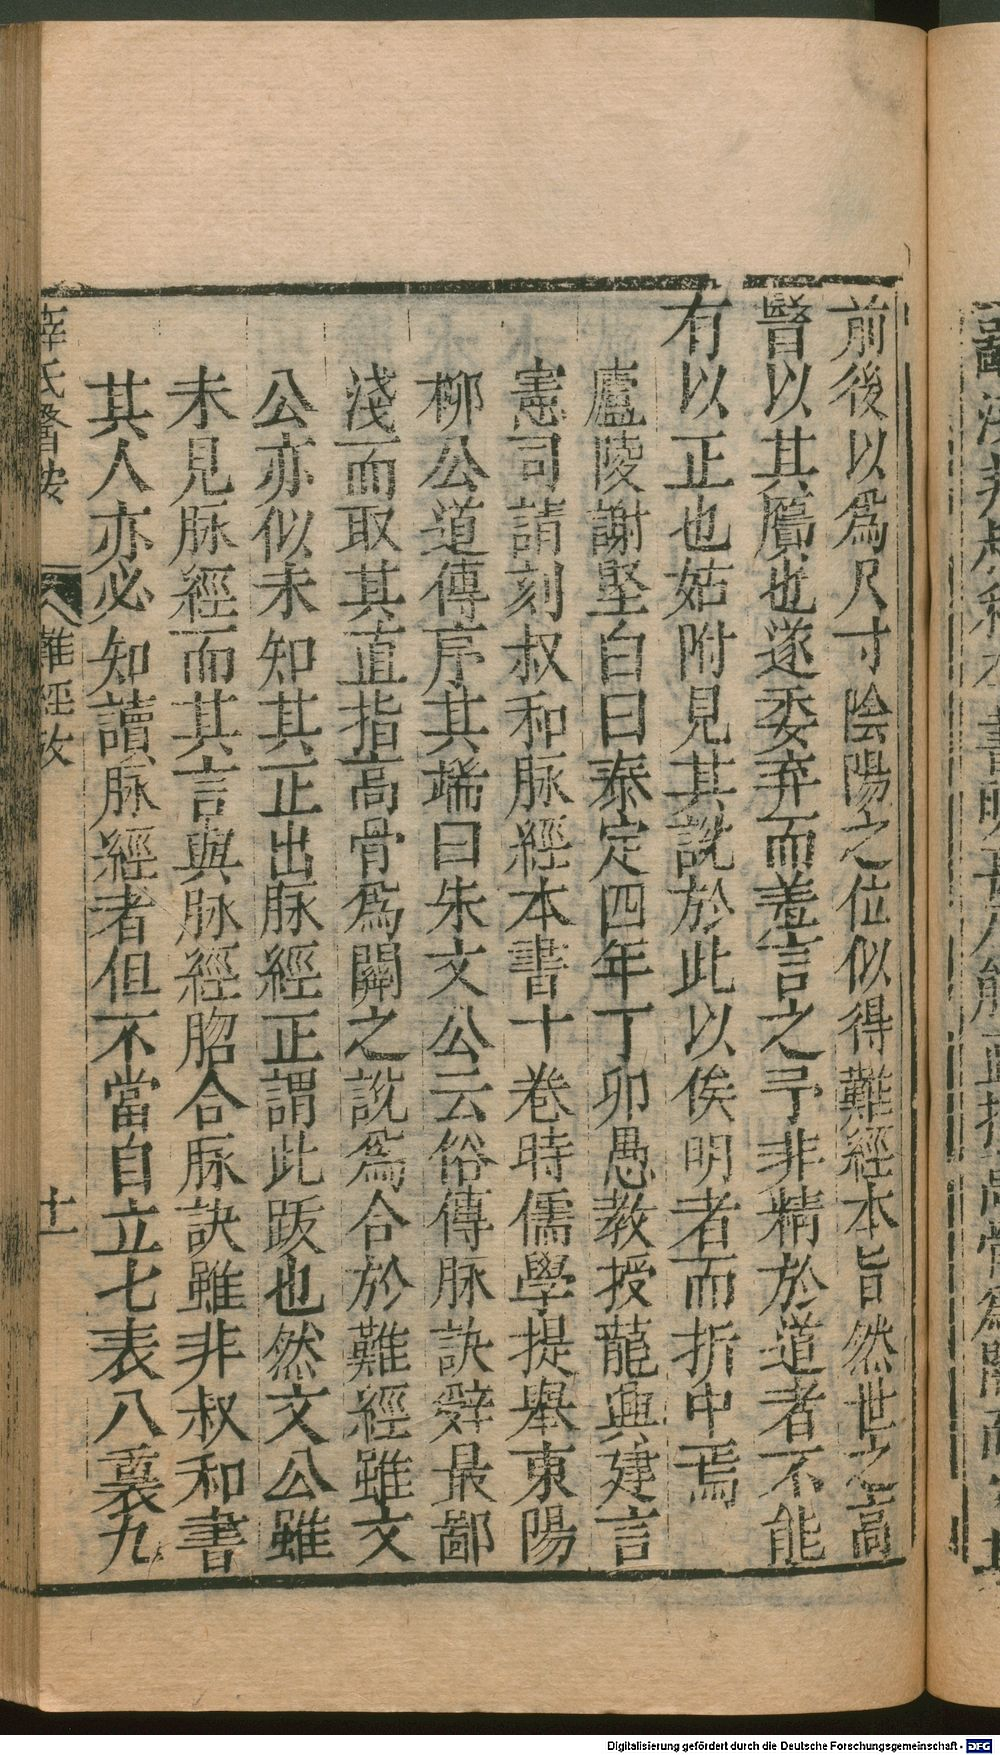 前後以爲尺寸陰陽之位似得難經本旨然世之高
醫以其贗也遂委弃而羞言之予非精於道者不能
有以正也姑附見其說於此以俟明者而折中焉
廬陵謝堅白曰泰定四年丁卯愚教授龍興建言
憲司請刻叔和脉經本書十卷時儒學提舉東陽
柳公道傳序其端曰朱文公云俗傳脉訣辭最鄙
淺而取其直指高骨爲關之說爲合於難經雖文
公亦似未知其正出脉經正謂此跋也然文公雖
未見脉經而其言與脉經脗合脉訣雖非叔和書
其人亦必知讀脉經者但不當自立七表八裏九
薛氏醫按
難經攷
十一
Digitalisierung gefördert durch die Deutsche Forschungsgemeinschaft - DFG